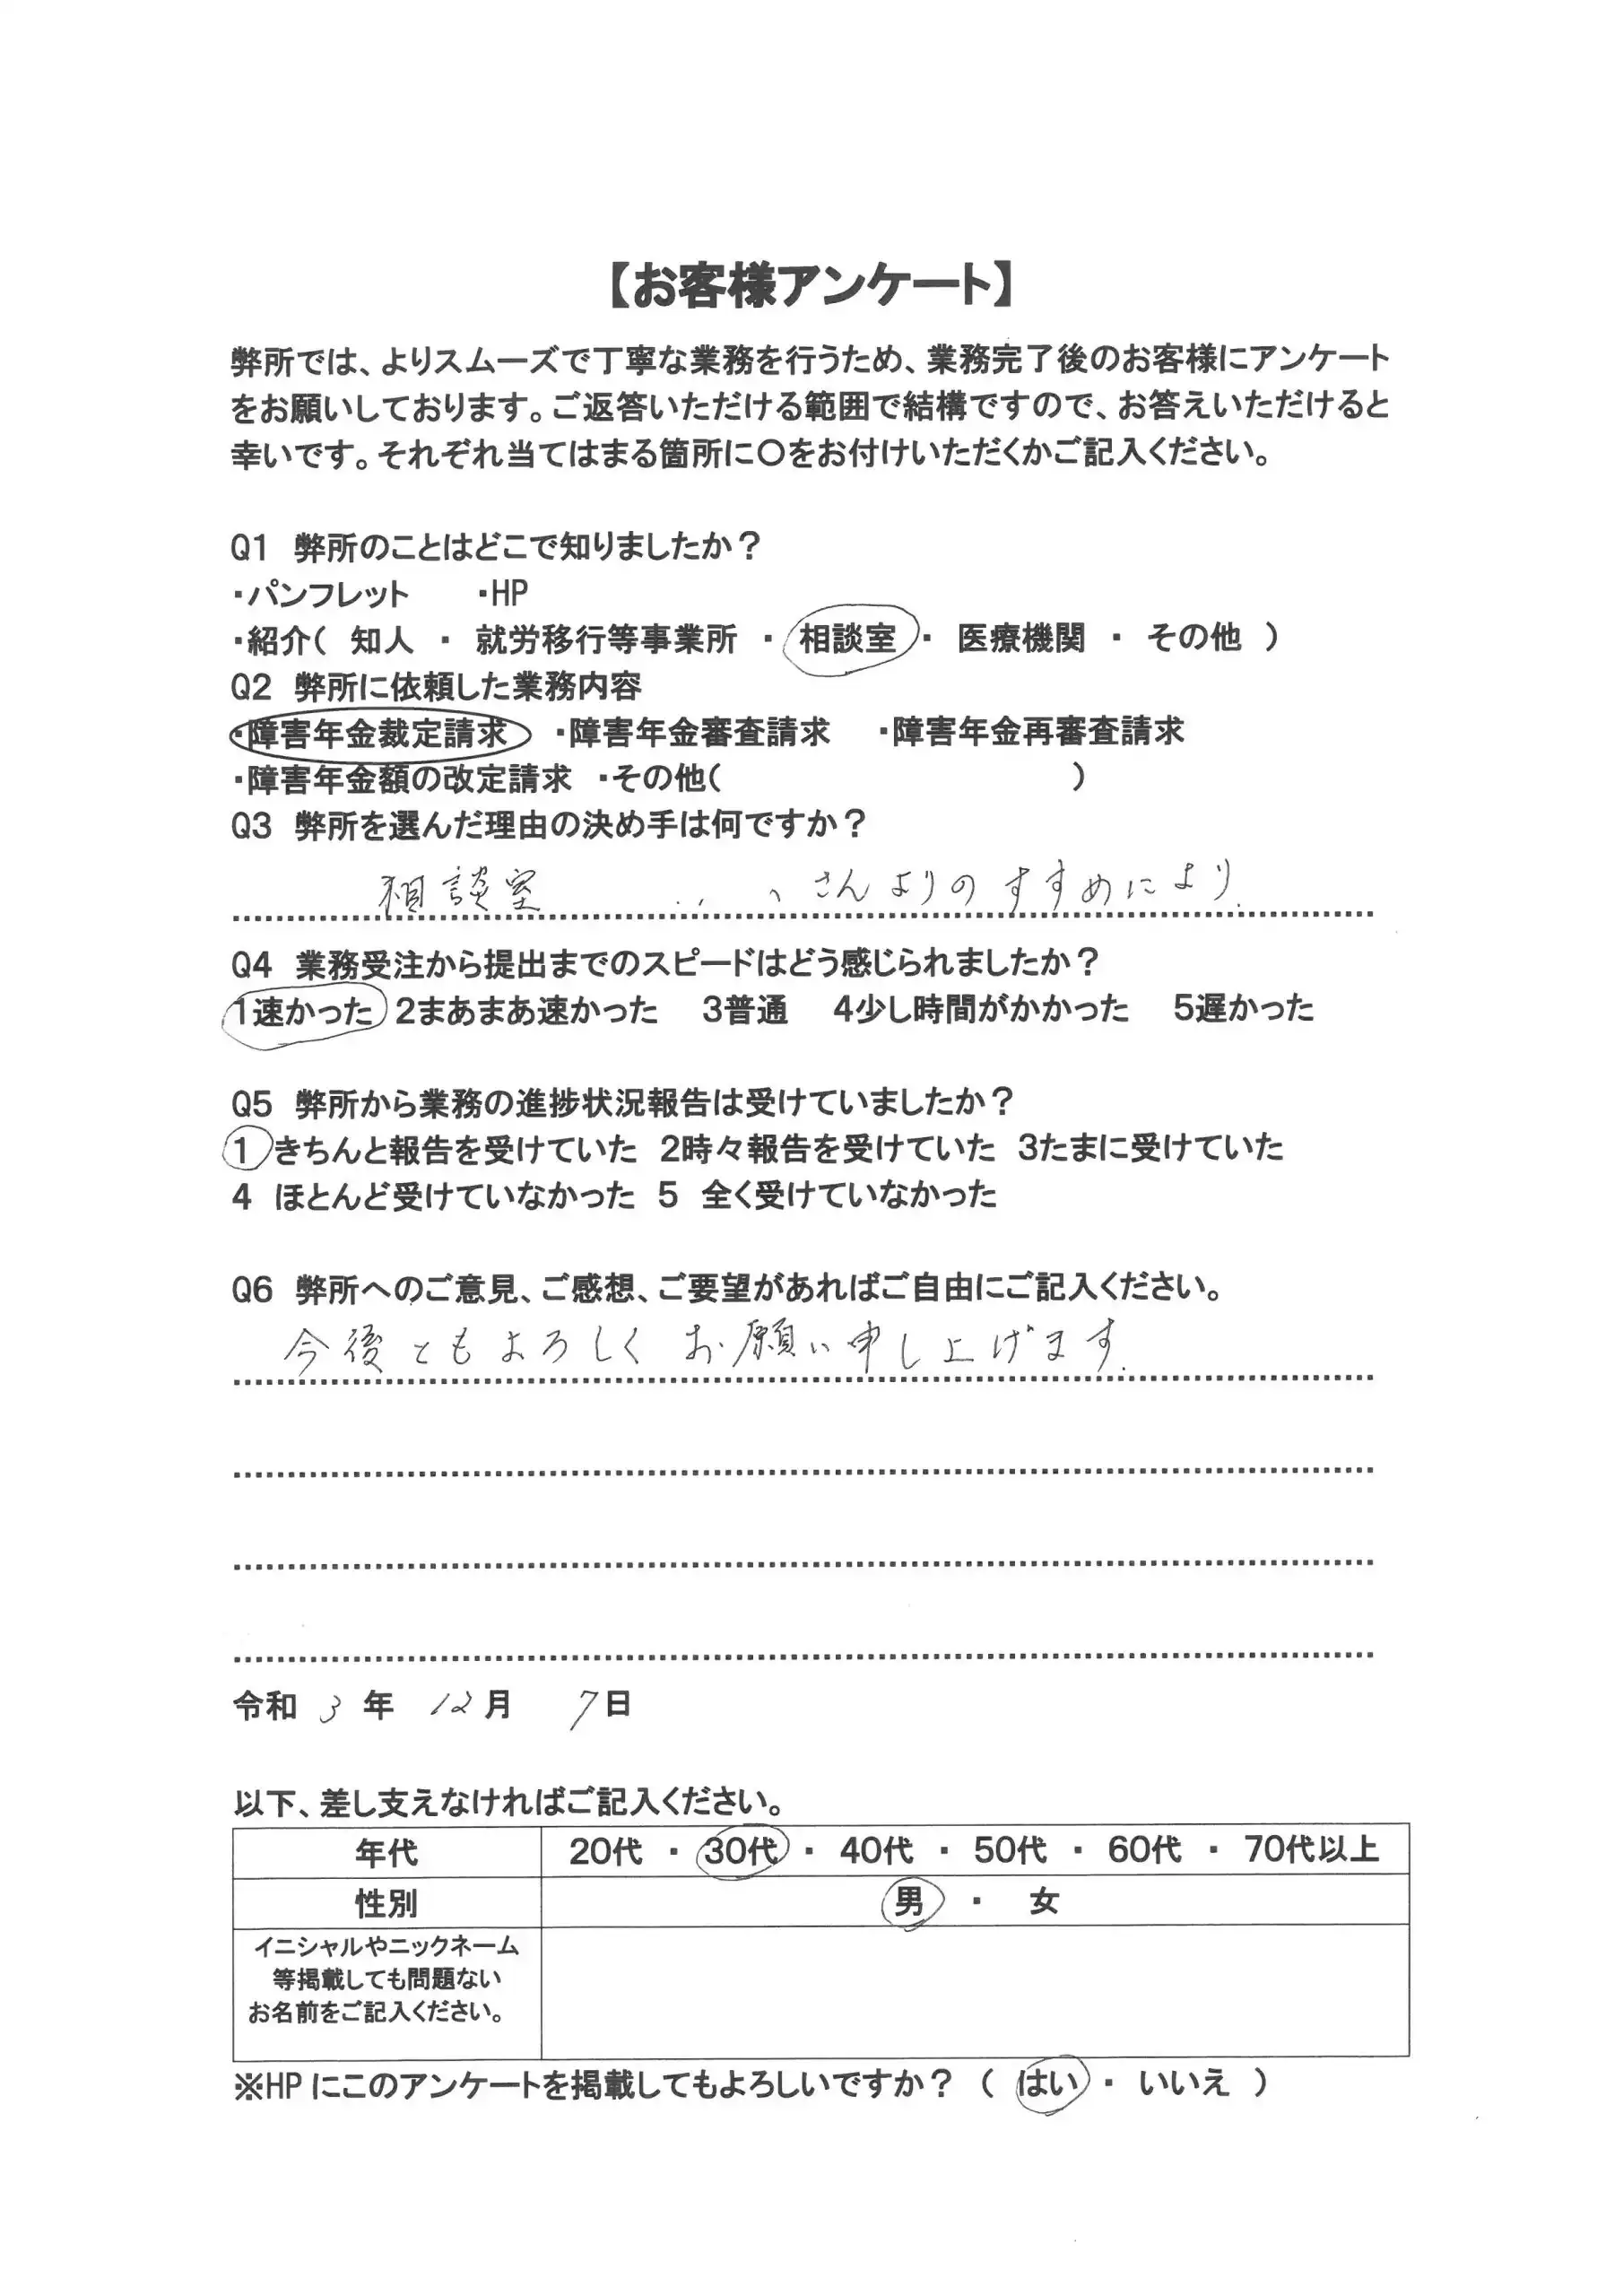 【お客様アンケート】
弊所では、よりスムーズで丁寧な業務を行うため、業務完了後のお客様にアンケート
をお願いしております。ご返答いただける範囲で結構ですので、お答えいただけると
幸いです。それぞれ当てはまる箇所に〇をお付けいただくかご記入ください。
Q1 弊所のことはどこで知りましたか？
・パンフレット ・HP
・紹介（ 知人 ・ 就労移行等事業所 ・ 相談室 ・ 医療機関 ・ その他 ）
Q2 弊所に依頼した業務内容
・障害年金裁定請求 ・障害年金審査請求 ・障害年金再審査請求
・障害年金額の改定請求 ・その他（ ）
Q3 弊所を選んだ理由の決め手は何ですか？
相談室 さんよりのすすめにより.
Q4 業務受注から提出までのスピードはどう感じられましたか？
1速かった 2まあまあ速かった 3普通 4少し時間がかかった 5遅かった
Q5 弊所から業務の進捗状況報告は受けていましたか？
1 きちんと報告を受けていた 2時々報告を受けていた 3たまに受けていた
4 ほとんど受けていなかった 5 全く受けていなかった
Q6 弊所へのご意見、ご感想、ご要望があればご自由にご記入ください。
今後ともよろしくお願い申し上げます.
令和 3 年 12 月 7 日
以下、差し支えなければご記入ください。
年代 20代 ・ 30代 ・ 40代 ・ 50代 ・ 60代 ・ 70代以上
性別 男 ・ 女
イニシャルやニックネーム
等掲載しても問題ない
お名前をご記入ください。
※HPにこのアンケートを掲載してもよろしいですか？（ はい ・ いいえ ）